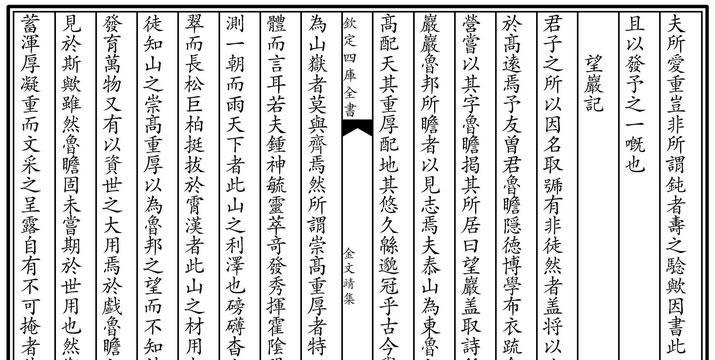 夫所愛重豈非所謂鈍者壽之驗歟因書此
且以發予之一嘅也
望巖記
君子之所以因名取號有非徒然者盖將以
於高遠焉予友曽君魯瞻隠徳博學布衣䟽
營嘗以其字魯瞻掲其所居曰望巖盖取詩
巖巖魯邦所瞻者以見志焉夫泰山為東魯
髙配天其重厚配地其悠久緜邈冠乎古今
欽定四庫全書
金文靖集
為山嶽者莫與齊焉然所謂崇髙重厚者特
體而言耳若夫鍾神毓靈萃竒發秀揮霍陰
測一朝而雨天下者此山之利澤也磅礴杳
翠而長松巨柏挺拔於霄漢者此山之材用
徒知山之崇髙重厚以為魯邦之望而不知
發育萬物又有以資世之大用焉於戲魯瞻
見於斯歟雖然魯瞻固未嘗期於世用也然
蓄渾厚凝重而文采之呈露自有不可掩者